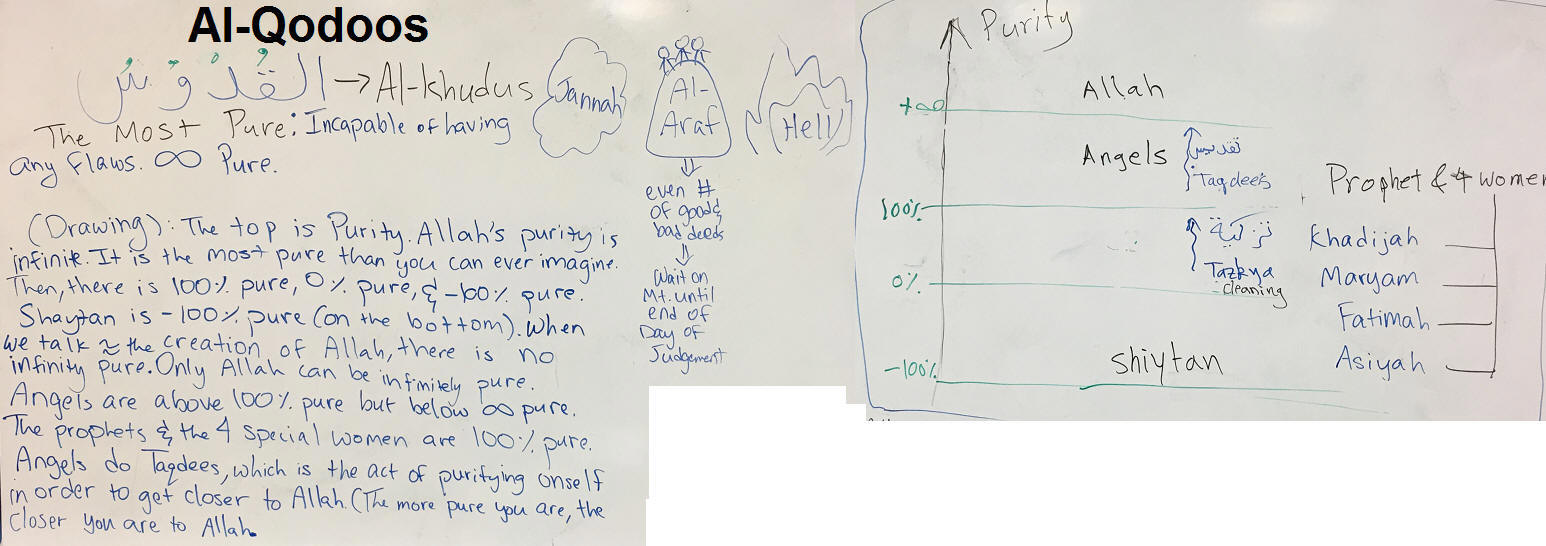 Al-Qodoos
القُدْوُّسُ → Al-khudus
The Most Pure: Incapable of having
any flaws. ∞ Pure.
(Drawing): The top is Purity. Allah's purity is
infinite. It is the most pure than you can ever imagine.
Then, there is 100% pure, 0% pure, & -100% pure.
Shaytan is -100% pure (on the bottom). When
we talk ≈ the creation of Allah, there is no
infinity pure. Only Allah can be infinitely pure.
Angels are above 100% pure but below ∞ pure.
The prophets & the 4 special women are 100% pure.
Angels do Taqdees, which is the act of purifying onself
in order to get closer to Allah. (The more pure you are, the
closer you are to Allah.
Jannah
Al-
Araf
Hell
⇓
even #
of good &
bad deeds
⇓
Wait on
Mt. until
end of
Day of
Judgement
Purity
+∞
Allah
Angels
تقديس
Taqdees
100%
تزكية
Tazkya
cleaning
0%
-100%
shiytan
Prophet & 4 women
Khadijah
Maryam
Fatimah
Asiyah